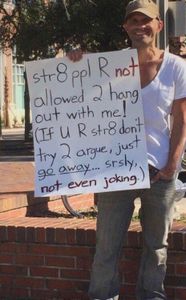 str8 ppl R not
allowed 2 hang
out with me!
(If U R str8 don't
try 2 argue, just
go away... srsly,
not even joking.)